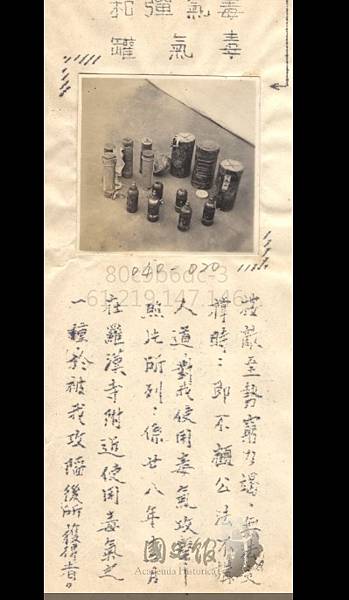 毒氣彈和
毒氣罐
040-020
80c9b6dc-3
61.219.147.146
按敵至勢窮力竭，無
時：即不顧公法不
人道，對我使用毒氣攻
照片所列：係廿八年
在羅漢寺附近使用毒氣之
一種，於被我攻陷後所獲得者。
國史館
Academia Historica